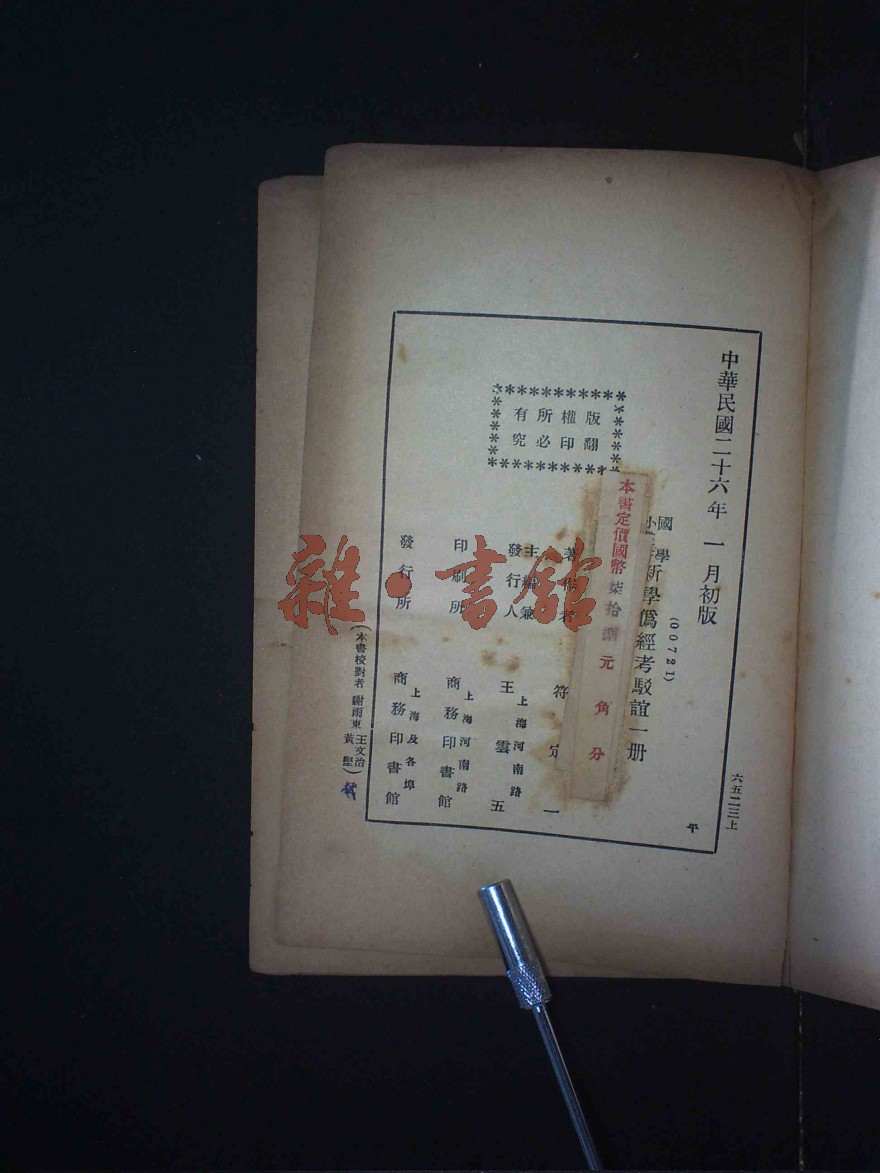 中華民國二十六年一月初版
六五二三上
(00721)
國學小
新學僞經考駁誼一册
平
本書定價國幣柒拾捌元角分
版權所有
翻印必究
著作者
符定一
主編兼
發行人
上海河南路
王雲五
印刷所
上海河南路
商務印書館
發行所
上海及各埠
商務印書館
(本書校對者 謝雨東 王文治 黃堅)
雜·書館